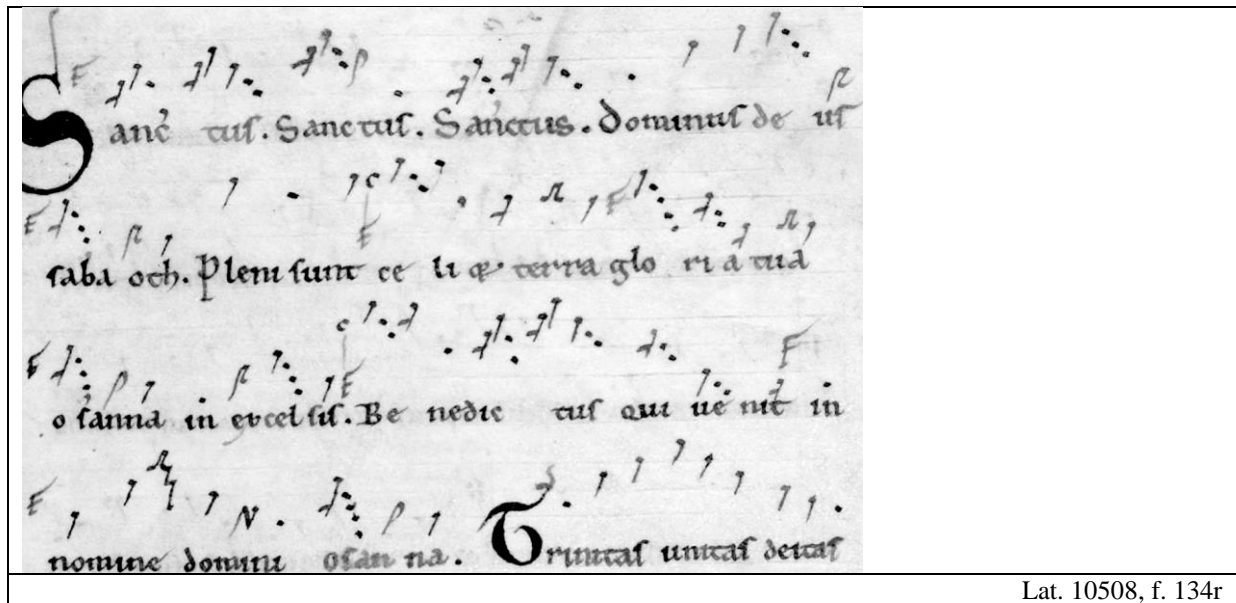 Sanc̄ tus. Sanctus. Sanctus. Dominus de us
saba oth. Pleni sunt ce li & terra glo ri a tua
o sanna in excelsis. Be nedic tus qui ue nit in
nomine domini osan na. Trinitas unitas deitas
Lat. 10508, f. 134r